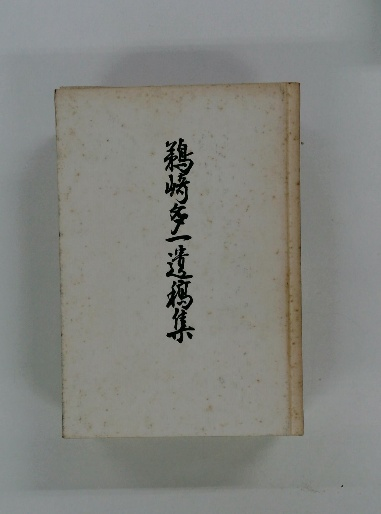 鵜崎多一遺稿集